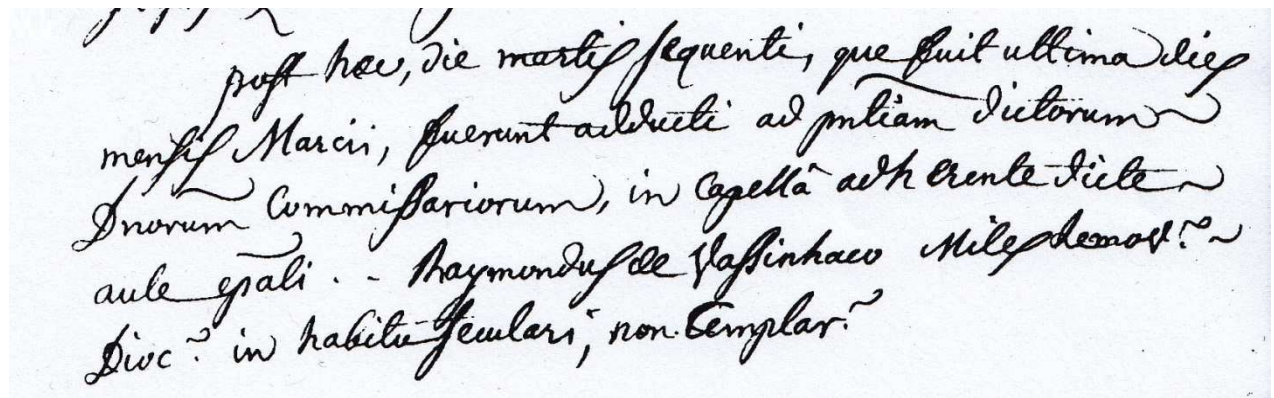 post hec, die martis sequenti, que fuit ultima dies
mensis Marcii, fuerunt adducti ad pntiam dictorum
Dnorum Commissariorum, in Capellâ adherente dicte
aule epali . - Raymondus de Vassinhaco Miles Lemov.
Dioc. in habitu seculari, non templar.